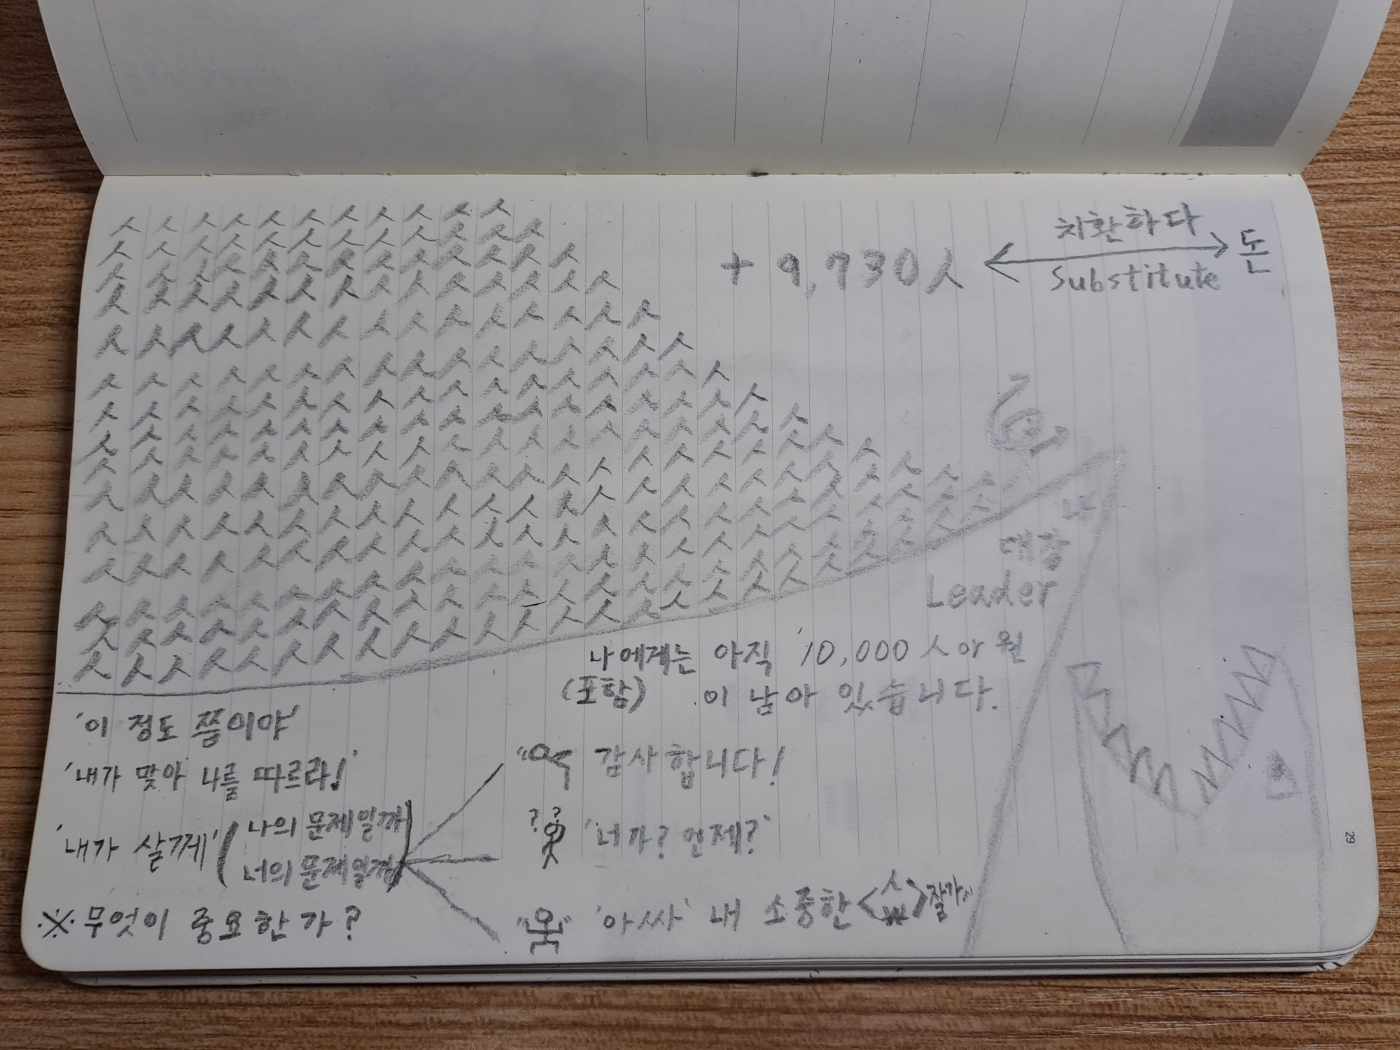 + 9,730人
치환하다
Substitute
돈
나
대장
Leader
나에게는 아직 10,000人 야 원
(포함) 이 남아 있습니다.
'이 정도 쯤이야'
'내가 맞아 나를 따르라!'
'내가 살께' (나의 문제일까
너의 문제일까)
※ 무엇이 중요한가?
감사합니다!
? ?
'너가? 언제?'
'아싸' 내 소중한 <人 ₩> 잘가
29